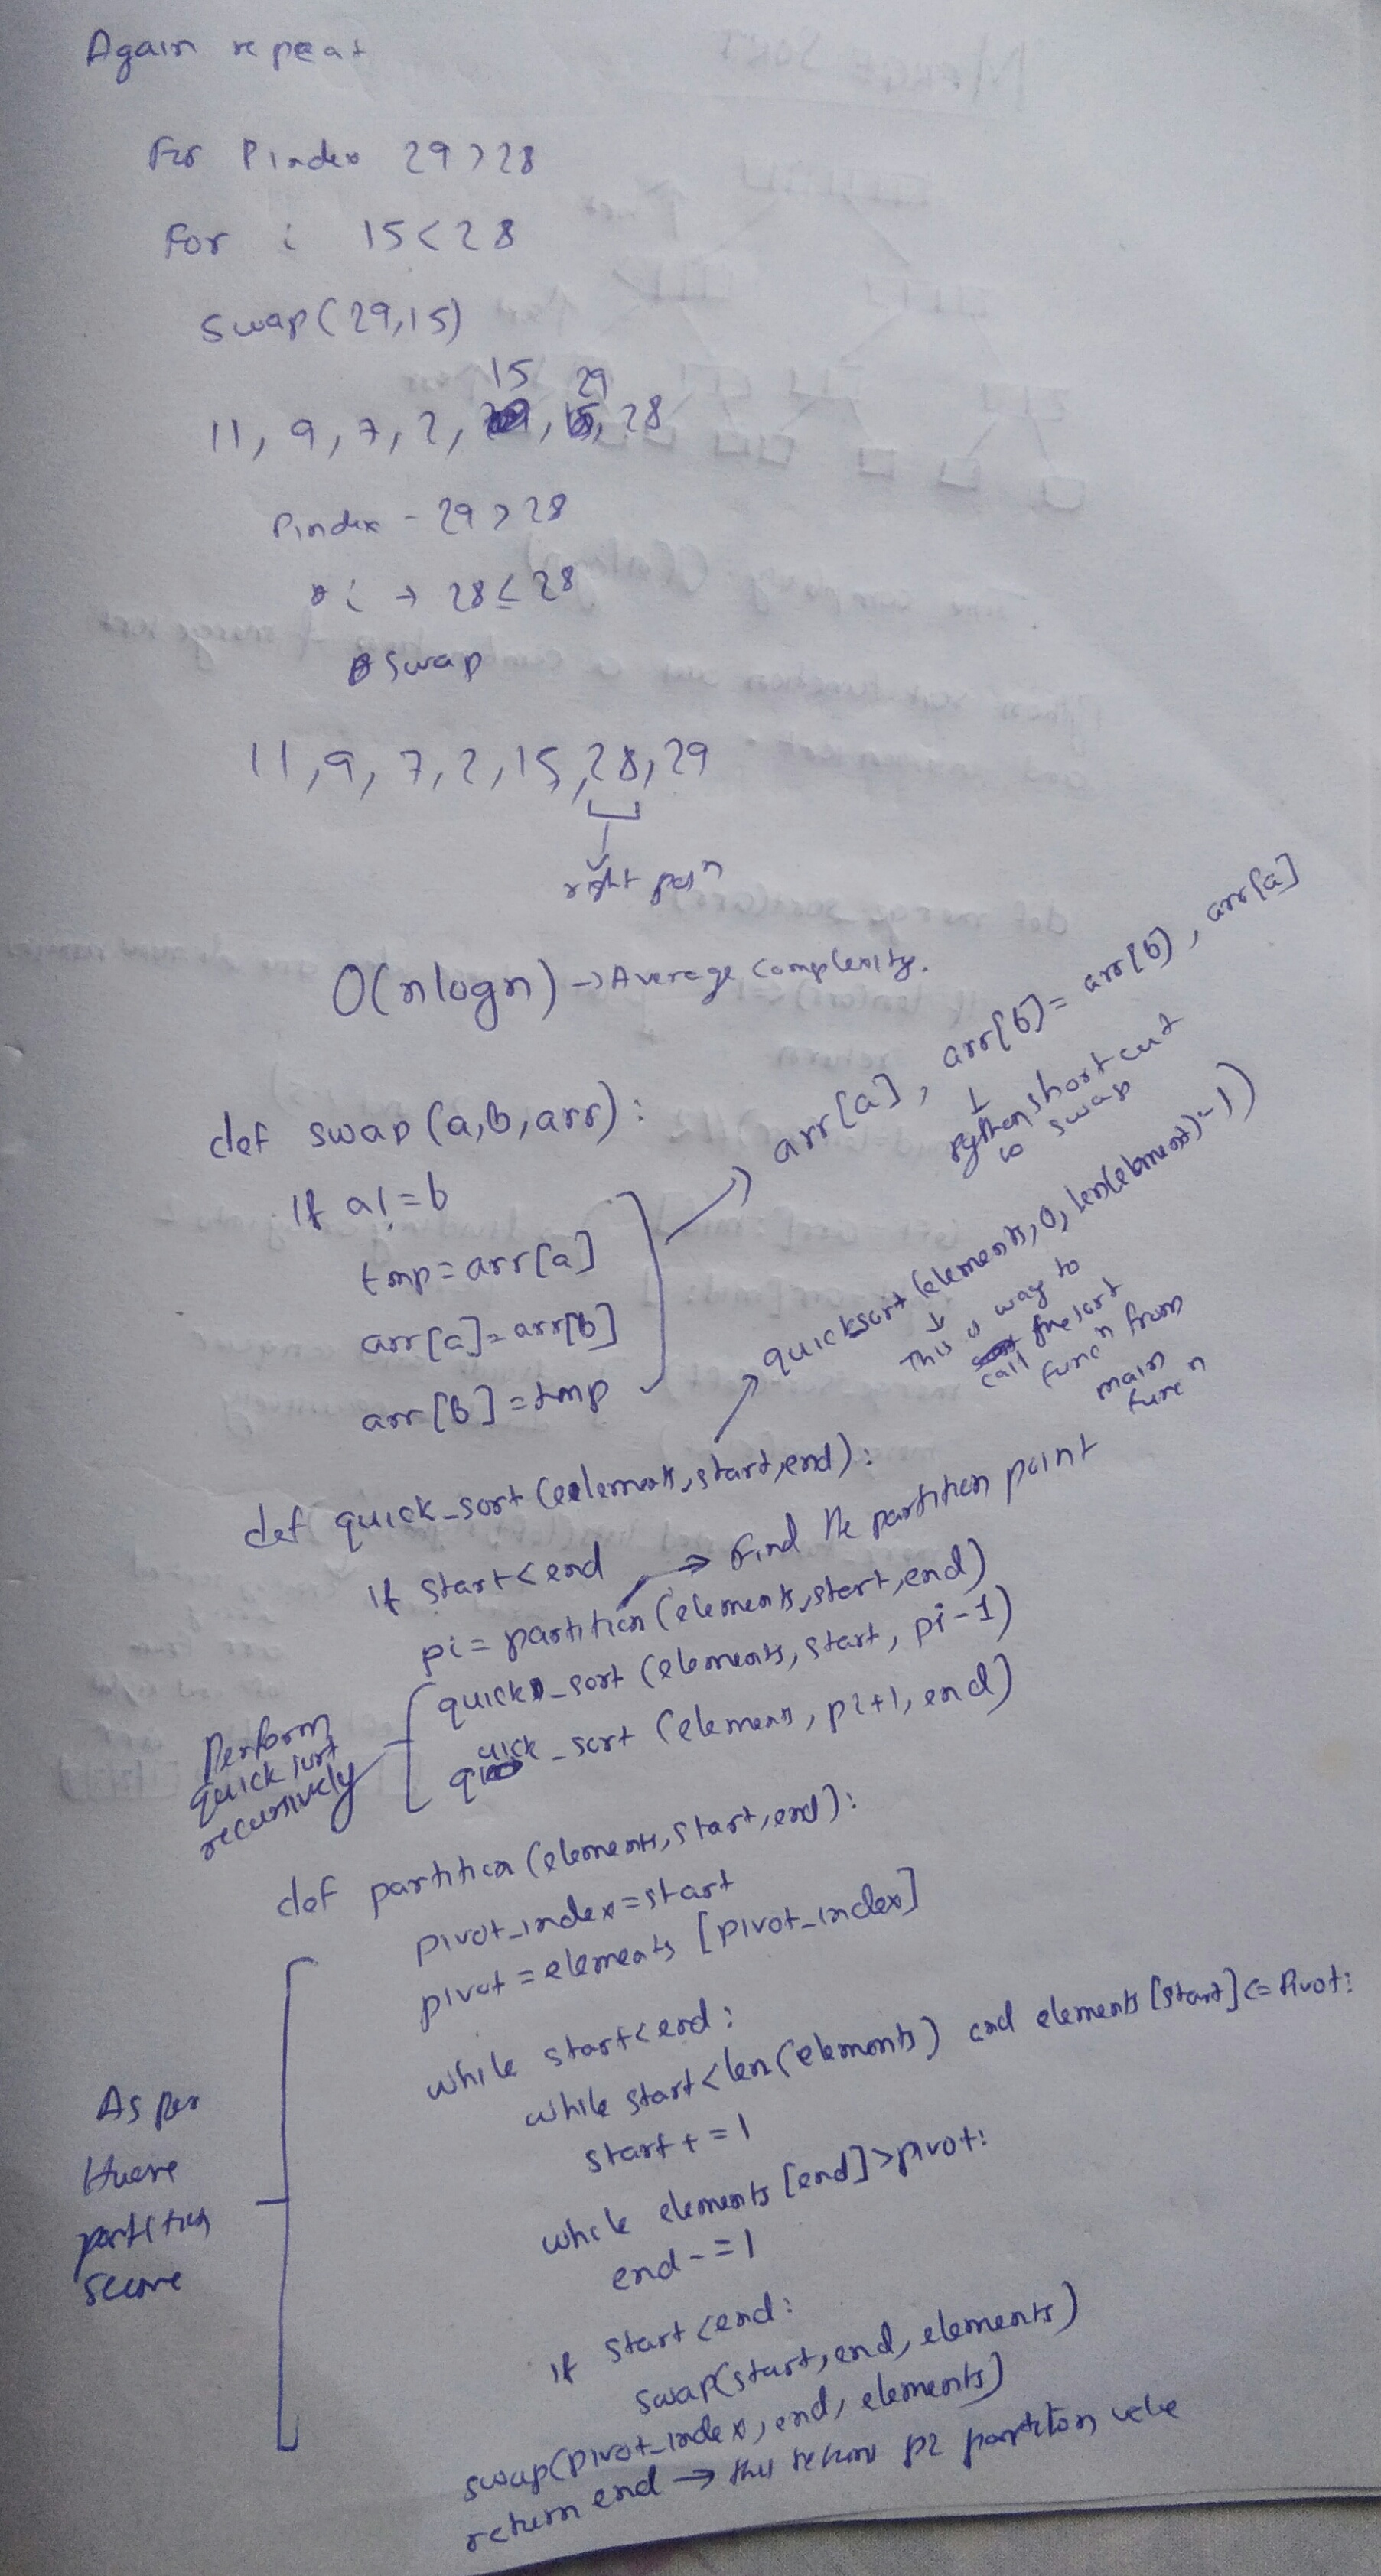 Again repeat
For Pindex 29>28
For i 15<28
Swap(29,15)
15 29
11, 9, 7, 2, 28
Pindex - 29>28
i → 28≤28
Swap
11, 9, 7, 2, 15, 28, 29
right posn
O(nlogn) → Average complexity.
def swap(a,b,arr):
If a!=b
tmp=arr[a]
arr[a]=arr[b]
arr[b]=tmp
arr[a], arr[b]= arr[b], arr[a]
python shortcut
to swap
def quick_sort(elements,start,end):
quicksort(elements,0,len(elements)-1)
This is way to
call the sort
funcn from
main
funcn
If start<end
pi=partition(elements,start,end)
→ Find the partition point
quick_sort(elements,start,pi-1)
quick_sort(elements,pi+1,end)
Perform
quick sort
recursively
def partition(elements,start,end):
pivot_index=start
pivot=elements[pivot_index]
while start<end:
while start<len(elements) and elements[start]<=Pivot:
start+=1
while elements[end]>pivot:
end-=1
If start<end:
swap(start,end,elements)
swap(pivot_index,end,elements)
return end → this return pi partition
As per
Hoare
partition